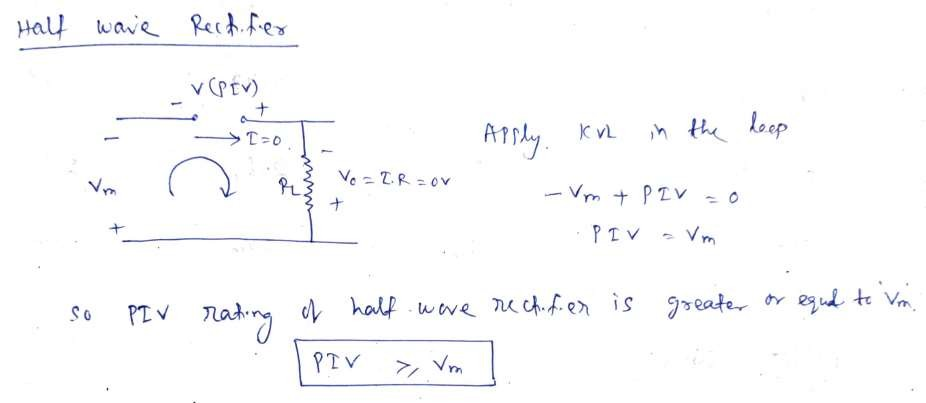 Half wave Rectifier
V(PIV)
- +
- I=0 -
Vm RL Vo = I.R = 0V
+ +
Apply KVL in the loop
- Vm + PIV = 0
PIV = Vm
So PIV rating of half wave rectifier is greater or equal to Vm.
PIV ≥ Vm